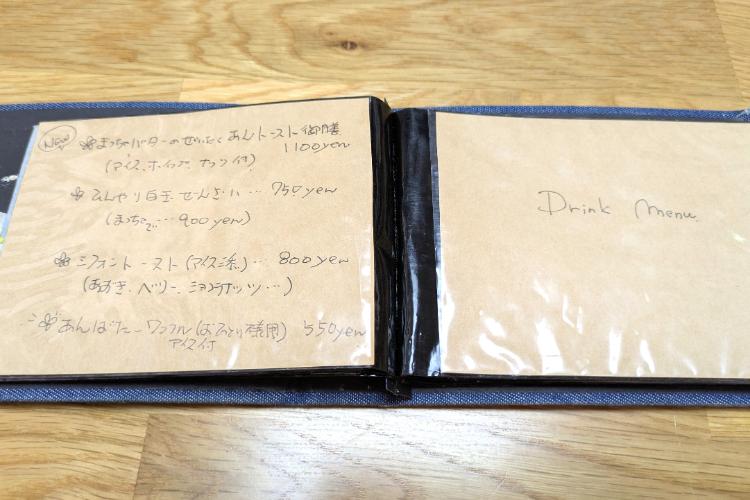 NEW まっちゃバターのぜいたくあんトースト御膳
1100yen
(アイス、ホイップ、ナッツ付)
ひんやり白玉ぜんざい… 750yen
(まっちゃで…900yen)
シフォントースト(アイス添)… 800yen
(あずき、ベリー、ショコラナッツ…)
あんばたーワッフル(おひとり様用) 550yen
アイス付
Drink Menu